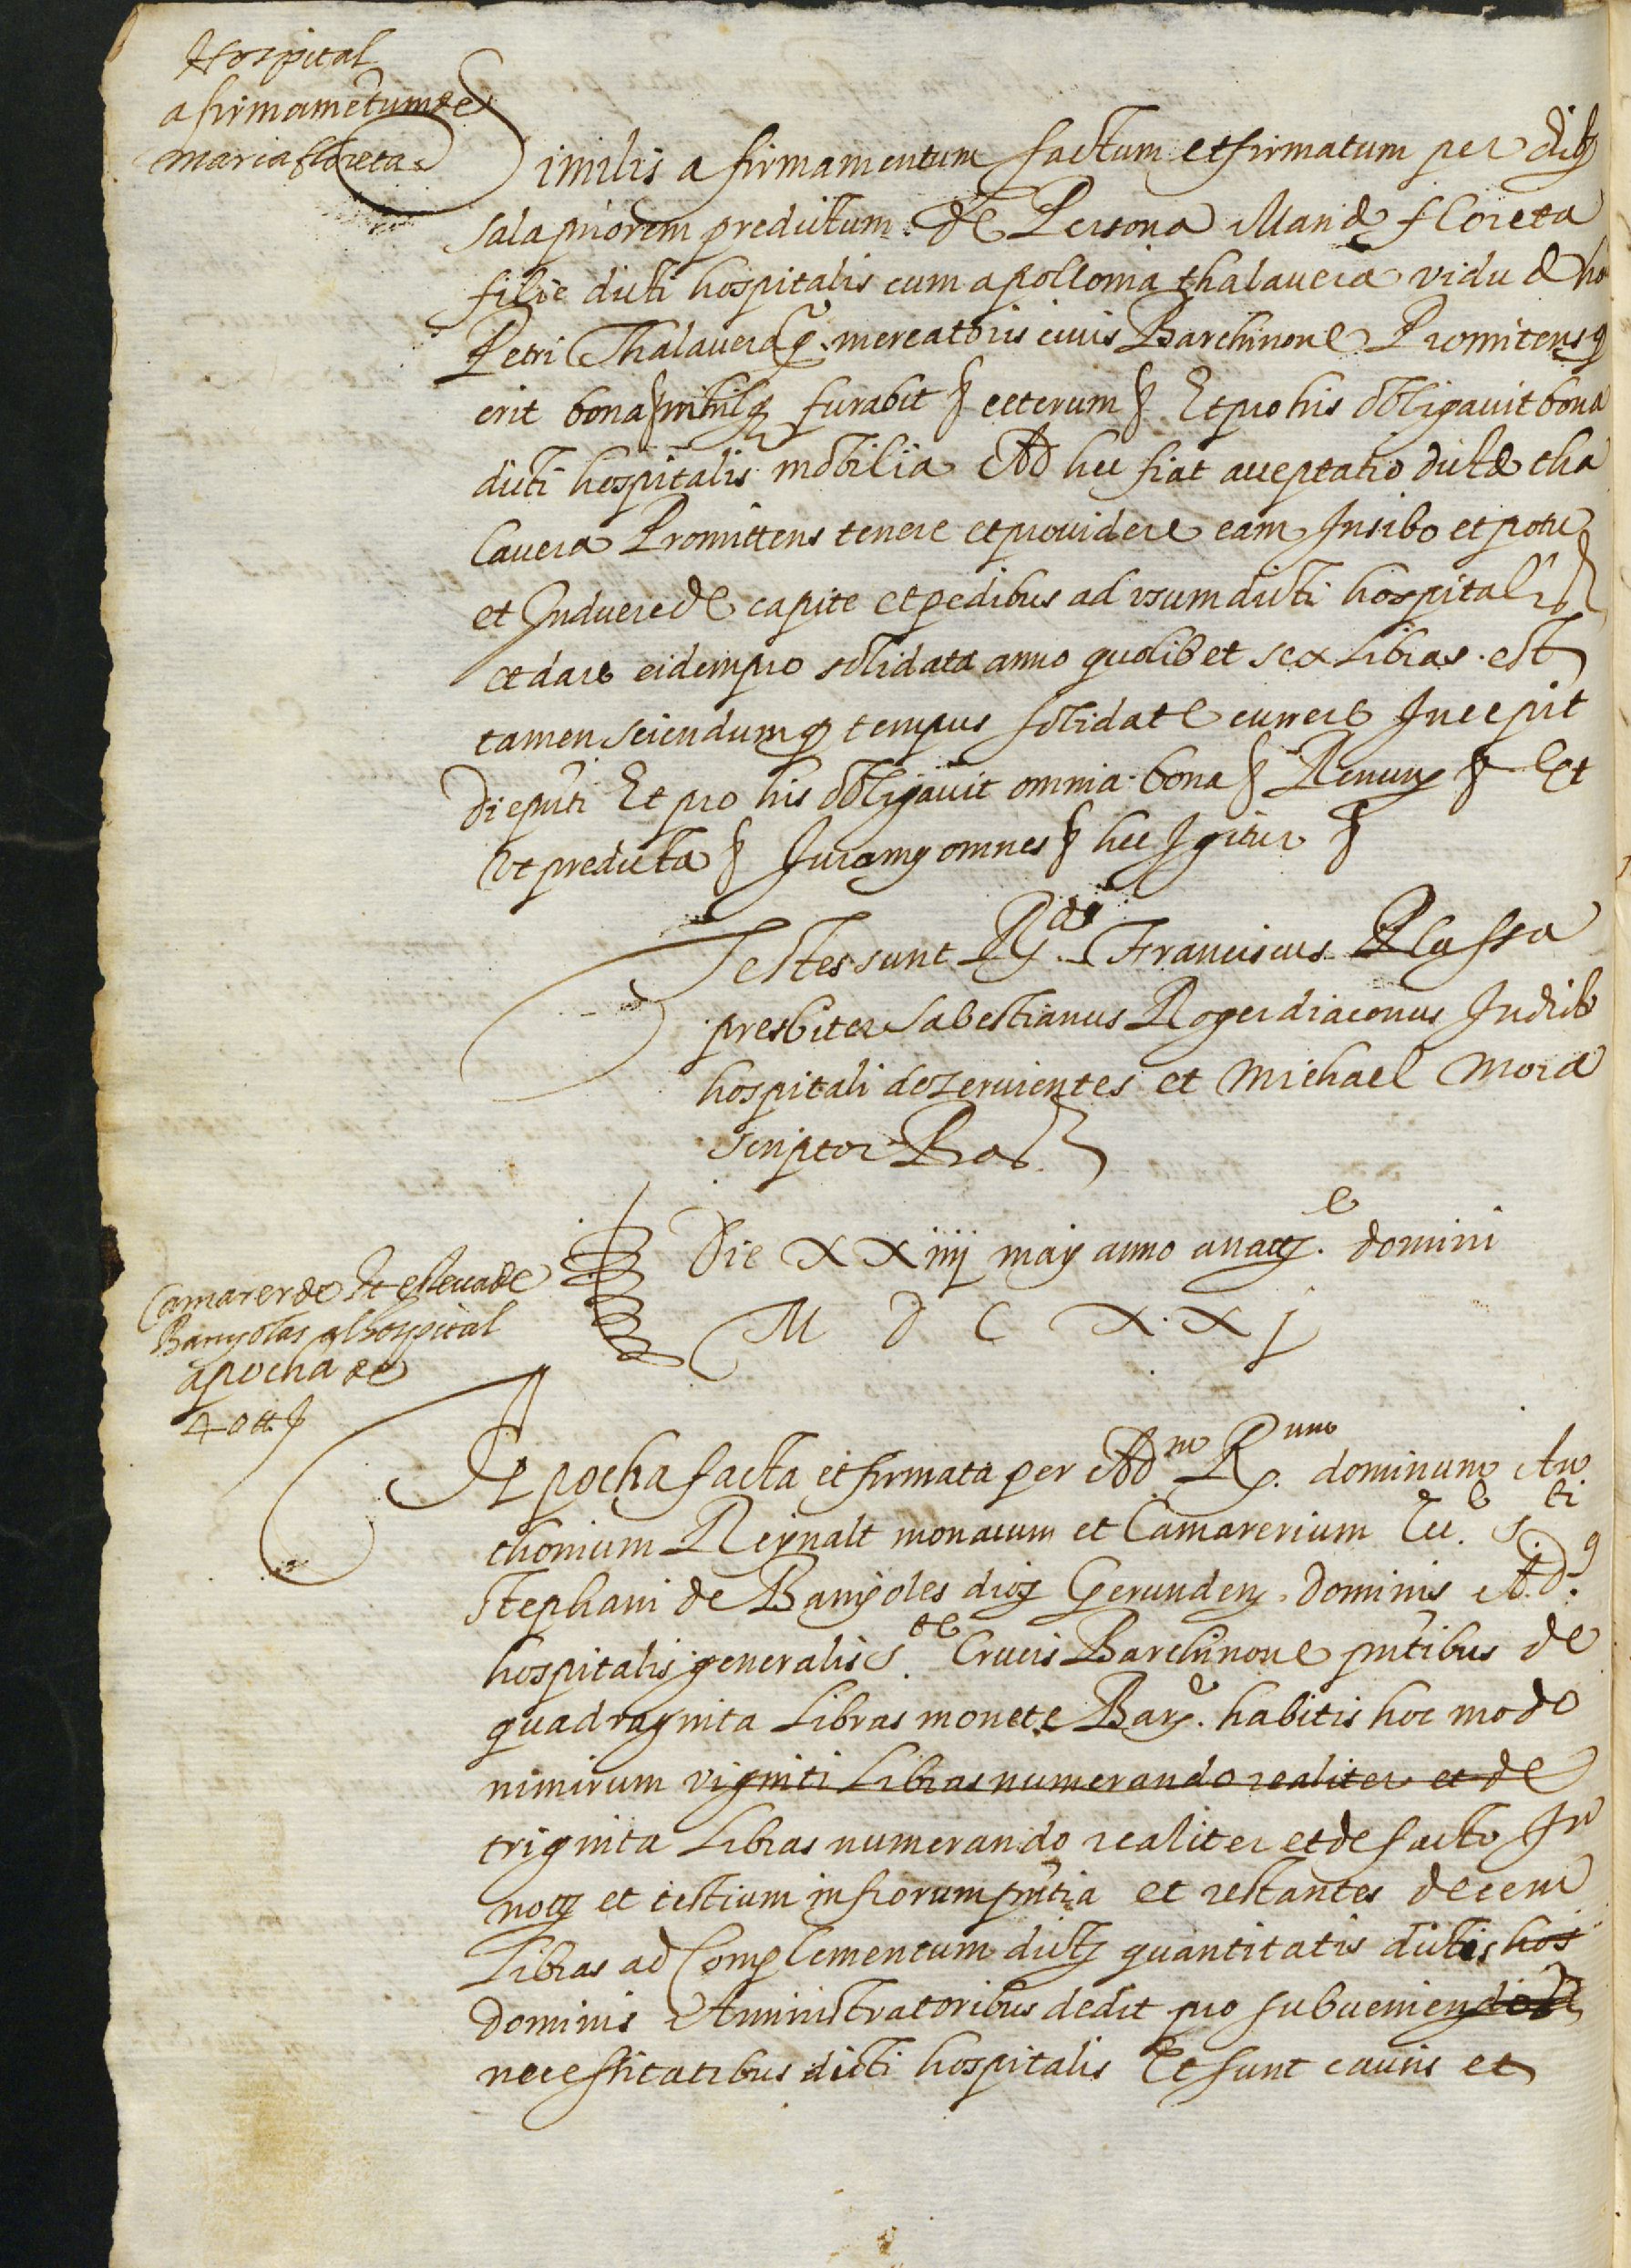 Hospital
afirmametum de
maria floreta
Similis afirmamentum factum et firmatum per dictū
sala priorem predictum de Persona Marie floreta
filie dicti hospitalis cum apollonia thalavera vidu
Petri Thalavera q. mercatoris civis Barchinone Promitens q
erit bona & nihilq furabit & ceterum & Et pro his obligavit bona
dicti hospitalis mobilia Ad hec fiat acceptatio dicte tha
lavera Promittens tenere et providere eam In sibo et potu
et Induere de capite et pedibus ad usum dicti hospitalis
et dare eidem pro solidata anno quolibet sex libras est
tamen sciendum q tempus solidate currere Incepit
die pnti Et pro his obligavit omnia bona & Renun & Et
Ut predicta & Juram omnes & hec Igitur &
Testes sunt Rds Franciscus Plassa
presbiter Sabestianus Roger diaconus In dicto
hospitali dezervientes et Michael Mora
scriptor Bar
Die XXiiij may anno a nate domini
M D C X X j
Camarer de St esteva de
Banyolas al hospital
apocha de
40 ₶
Apocha facta et firmata per Adm Rum. dominum An
thonium Reynalt monacum et Camarerium Ecc. Sti
Stephani de Banyoles dioc Gerunden. dominis Ad
hospitalis generalis S. te Crucis Barchinone pntibus de
quadraginta libras monete Bare. habitis hoc modo
nimirum viginti libras numerando realiter et de
triginta libras numerando realiter et de facto In
noty et testium infrorum pntia et restantes decem
libras ad Complementum dicte quantitatis dictis hos
dominis Aministratoribus dedit pro subveniendo
necessitatibus dicti hospitalis Et sunt causis et